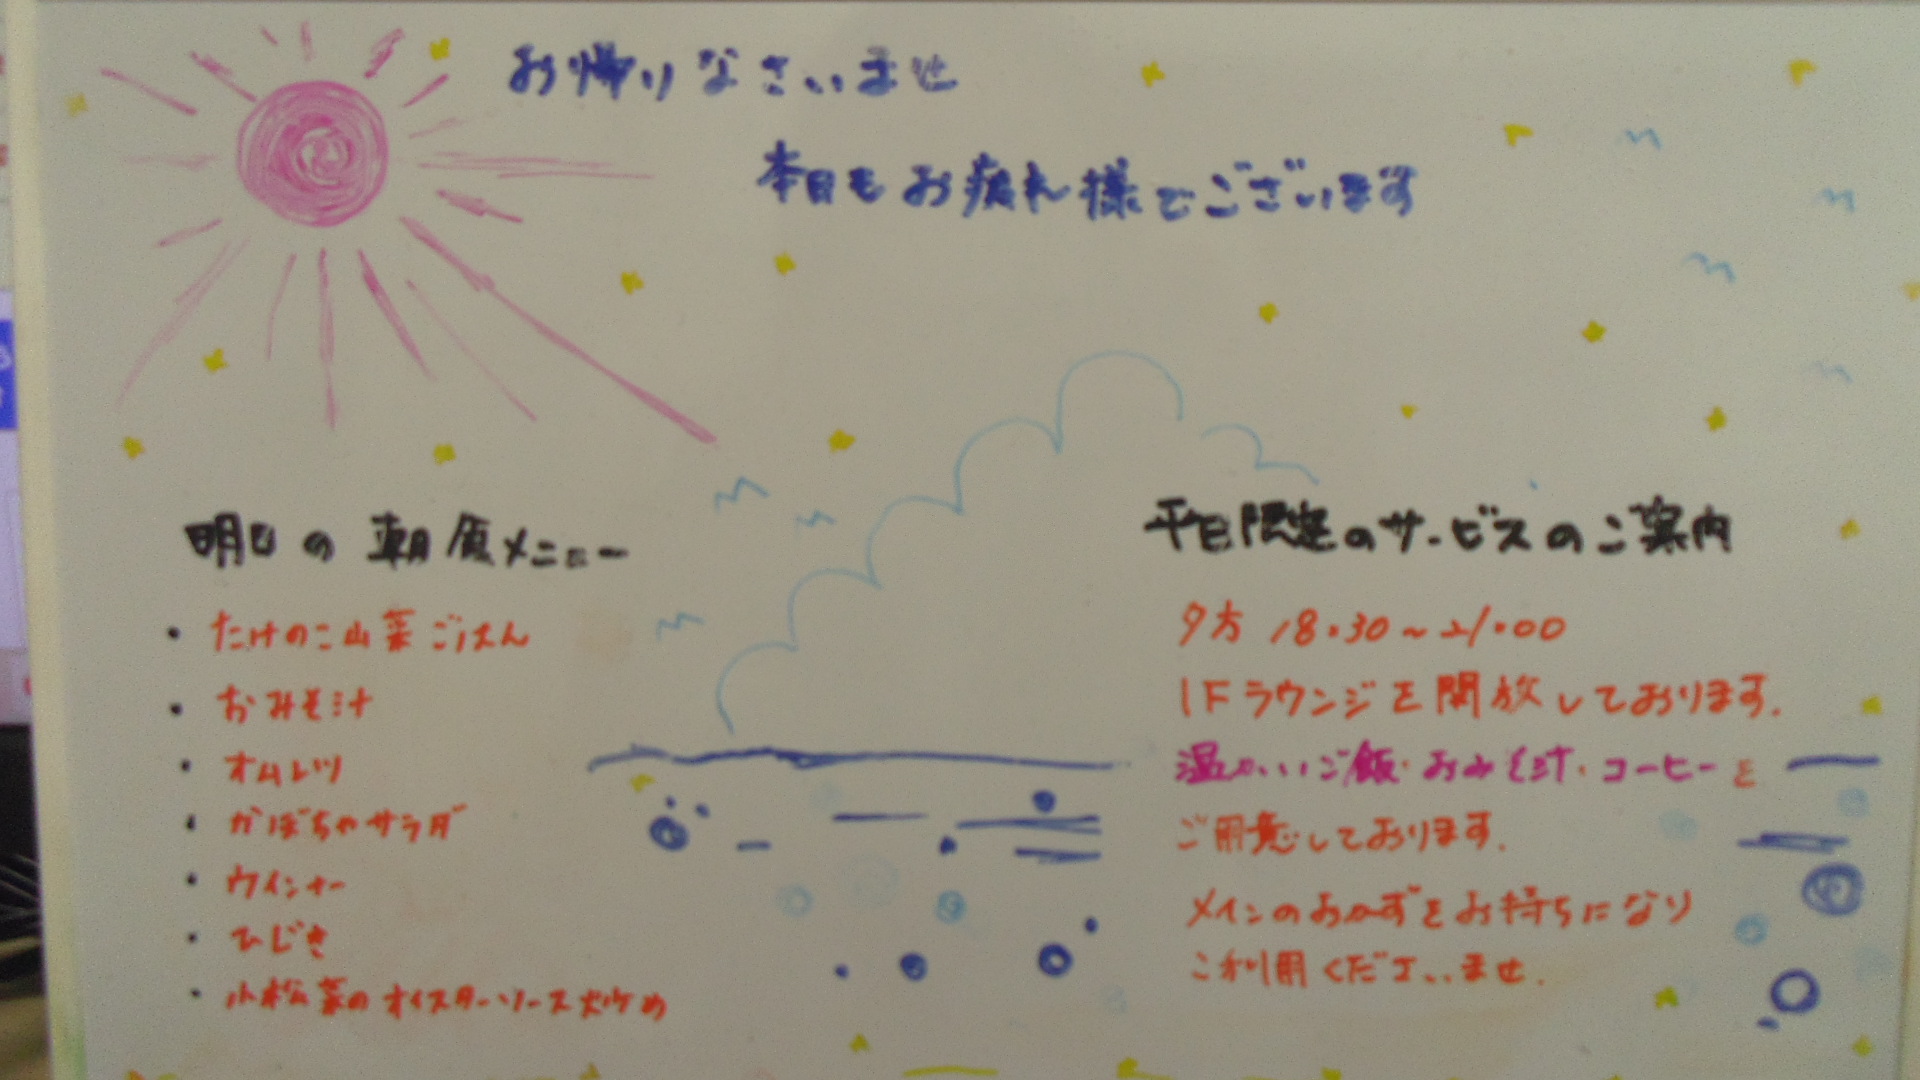 お帰りなさいませ
本日もお疲れ様でございます
明日の朝食メニュー
・たけのこ山菜ごはん
・おみそ汁
・オムレツ
・かぼちゃサラダ
・ウインナー
・ひじき
・小松菜のオイスターソース炒め
平日限定のサービスのご案内
夕方 18:30~21:00
1Fラウンジを開放しております.
温かいご飯・おみそ汁・コーヒーを
ご用意しております.
メインのおかずをお持ちになり
ご利用くださいませ.